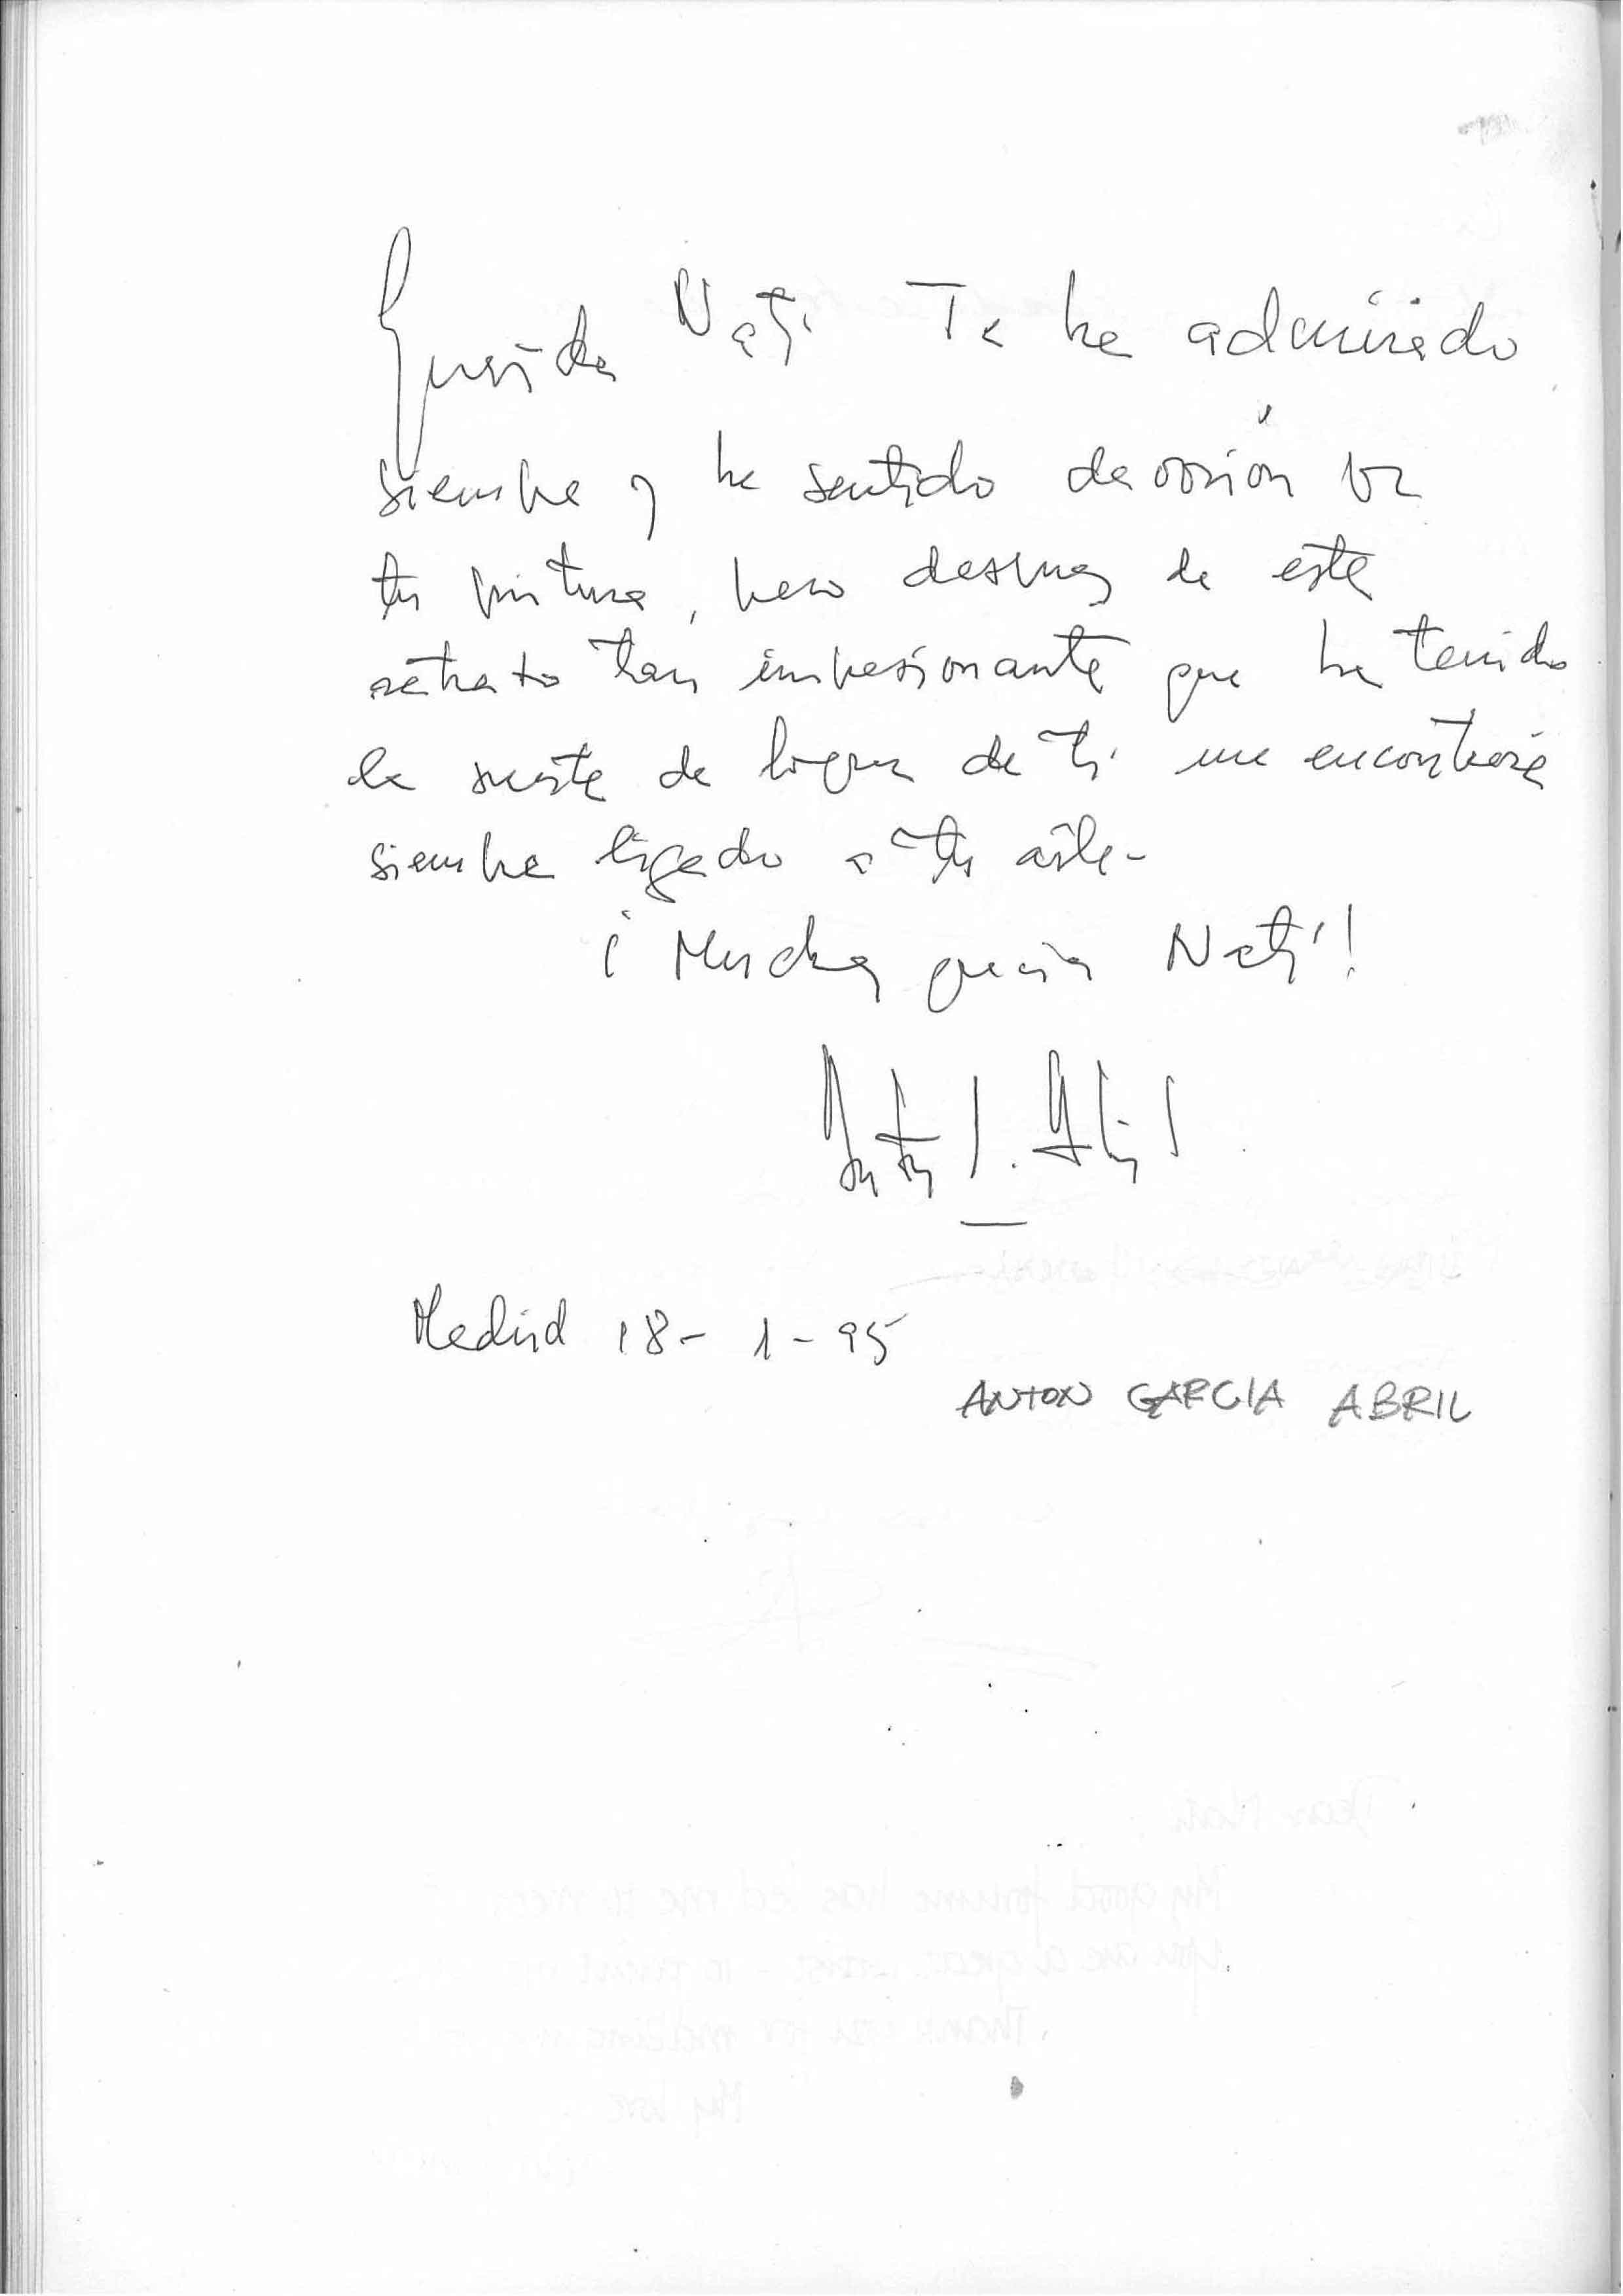 Querida Nati: Te he admirado
siempre y he sentido devoción por
tu pintura, pero despues de este
retrato tan impresionante que he tenido
la suerte de lograr de ti me encontraré
siempre ligado a tu arte-
¡Muchas gracias Nati!
Antón G. Abril
Madrid 18-1-95
ANTON GARCIA ABRIL